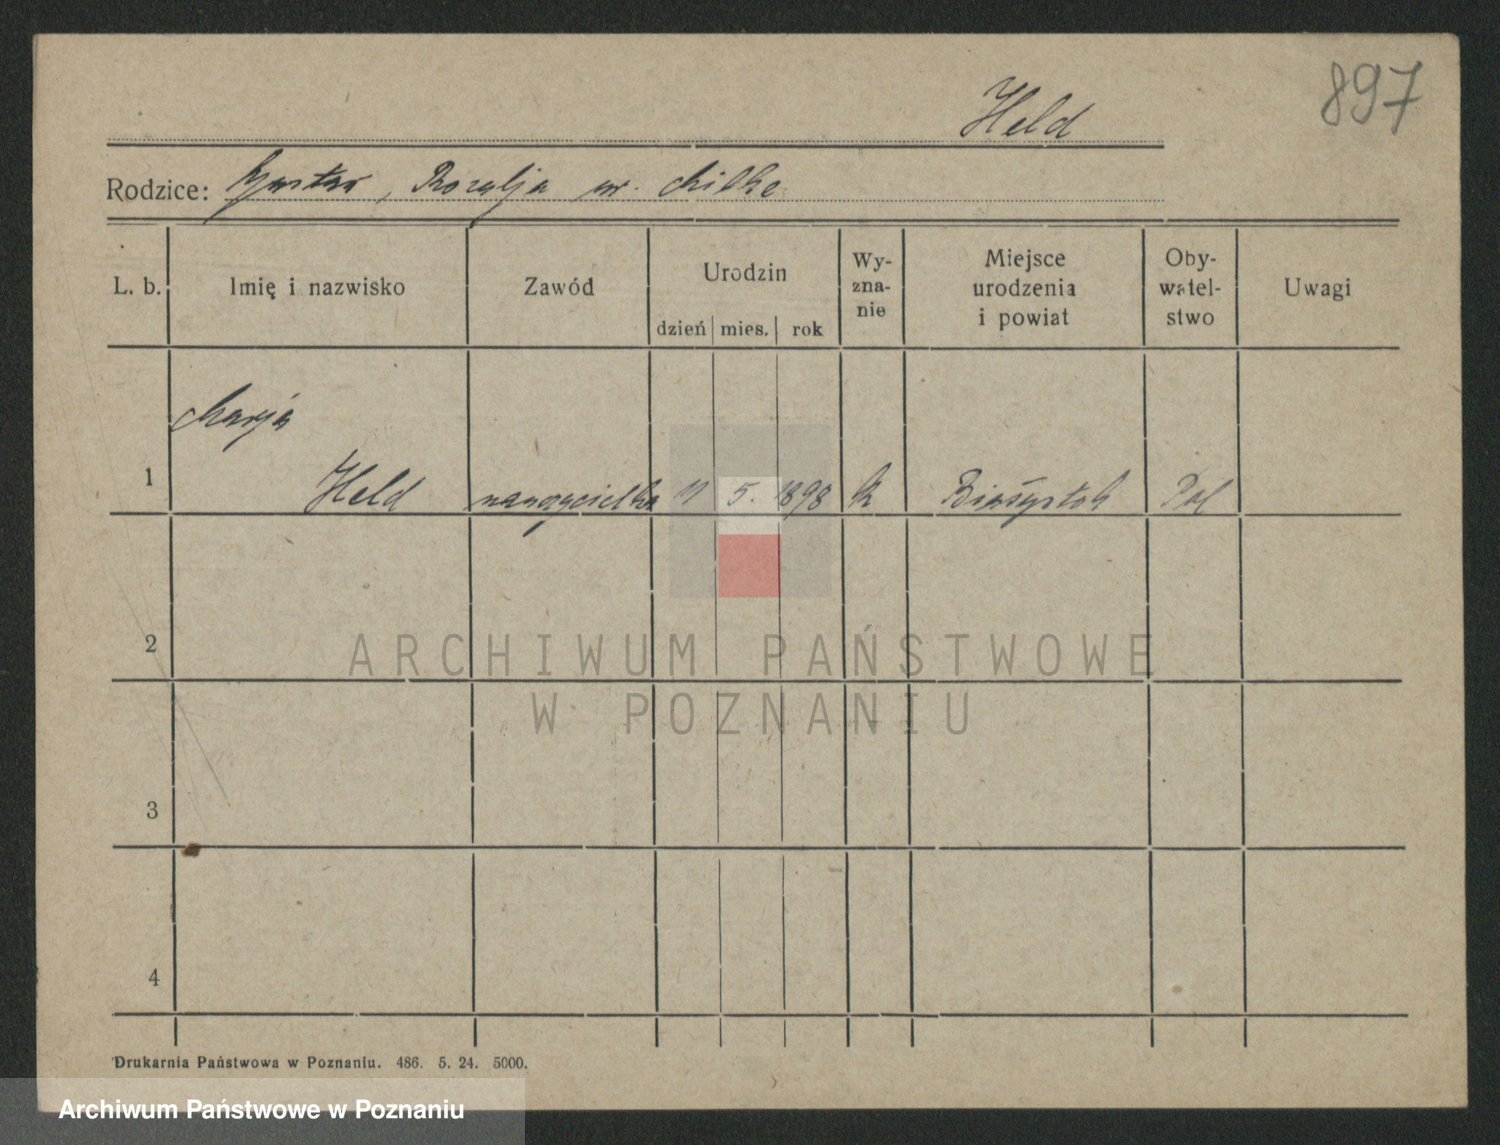 897
Held
Rodzice: Gustaw, Rozalja ur. Milke
L. b. Imię i nazwisko Zawód Urodzin dzień mies. rok Wy-
zna-
nie Miejsce
urodzenia
i powiat Oby-
watel-
stwo Uwagi
Marja
1 Held nauczycielka 11 5. 1898 k Białystok Pol
2
ARCHIWUM PAŃSTWOWE
W POZNANIU
3
4
Drukarnia Państwowa w Poznaniu. 486. 5. 24. 5000.
Archiwum Państwowe w Poznaniu